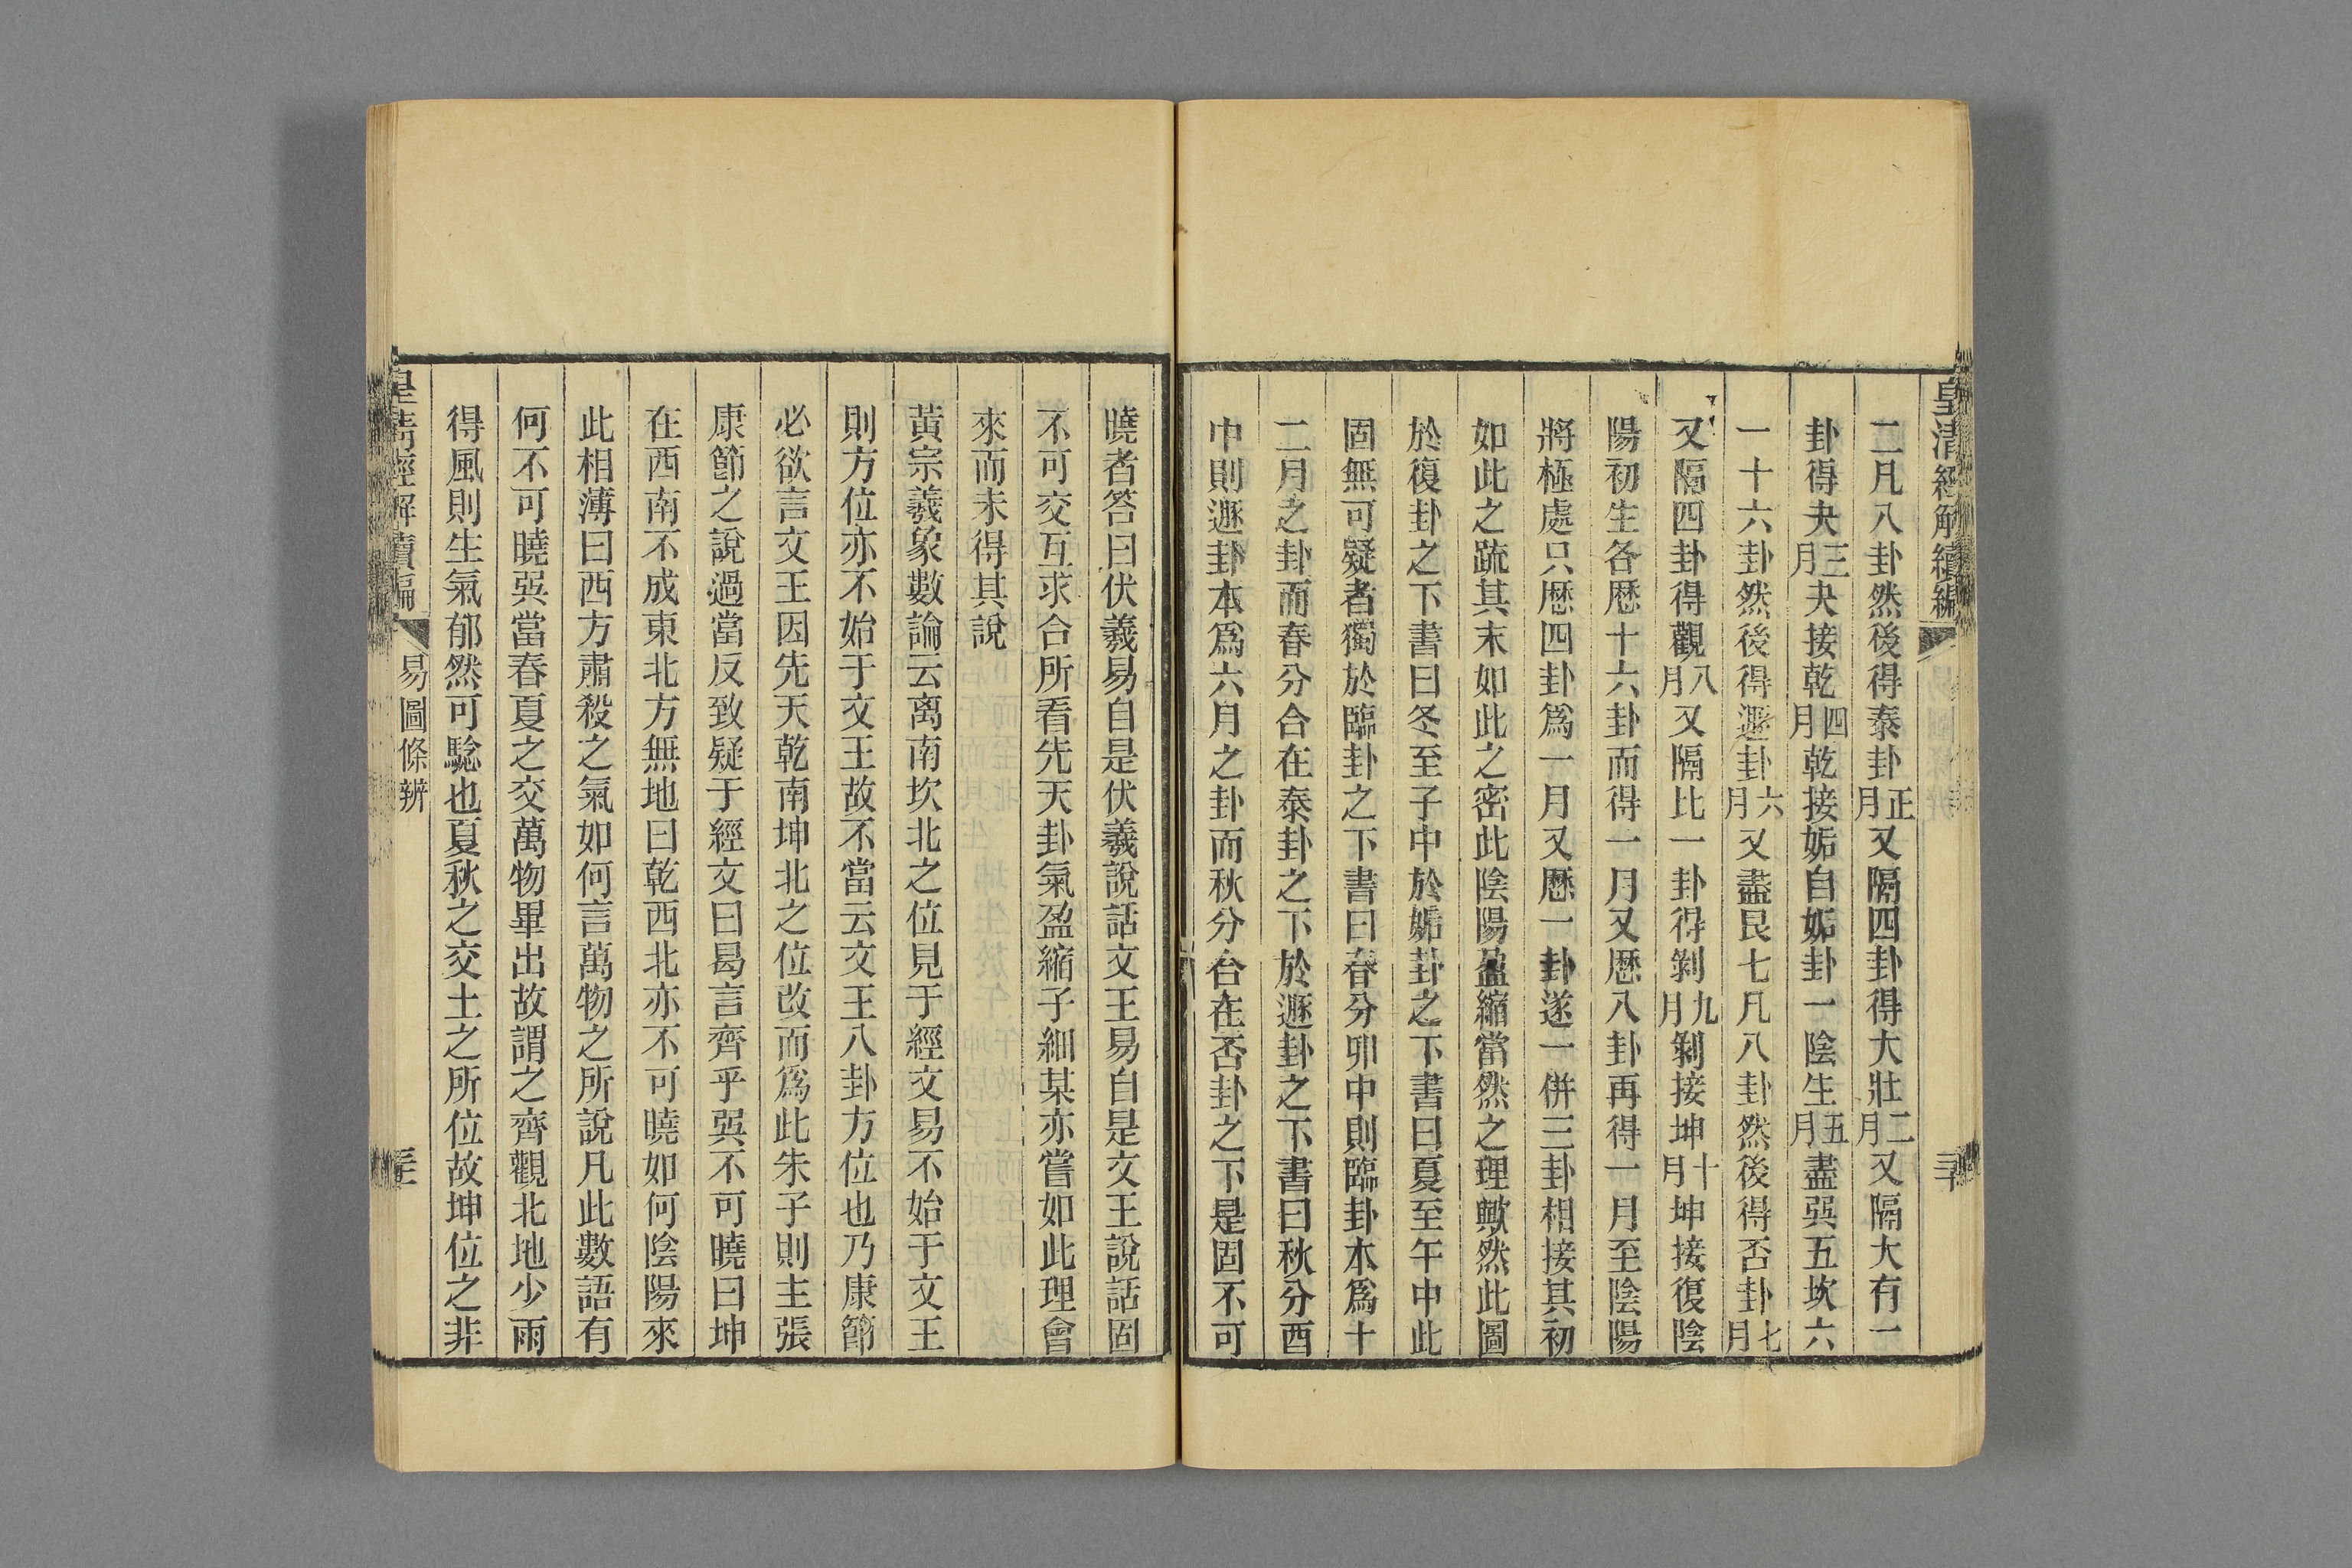 皇清經解續編
二凡八卦然後得泰卦正月又隔四卦得大壯二月又隔大有一
卦得夬三月夬接乾四月乾接姤自姤卦一陰生五月盡巽五坎六
一十六卦然後得遯卦六月又盡艮七凡八卦然後得否卦七月
又隔四卦得觀八月又隔比一卦得剝九月剝接坤十月坤接復陰
陽初生各歴十六卦而得一月又歴八卦再得一月至陰陽
將極處只歴四卦爲一月又歴一卦遂一併三卦相接其初
如此之疏其末如此之密此陰陽盈縮當然之理歟然此圖
於復卦之下書曰冬至子中於姤卦之下書曰夏至午中此
固無可疑者獨於臨卦之下書曰春分卯中則臨卦本爲十
二月之卦而春分合在泰卦之下於遯卦之下書曰秋分酉
中則遯卦本爲六月之卦而秋分合在否卦之下是固不可
曉者答曰伏羲易自是伏羲說話文王易自是文王說話固
不可交互求合所看先天卦氣盈縮子細某亦嘗如此理會
來而未得其說
黃宗羲象數論云离南坎北之位見于經文易不始于文王
則方位亦不始于文王故不當云文王八卦方位也乃康節
必欲言文王因先天乾南坤北之位改而爲此朱子則主張
康節之說過當反致疑于經文曰曷言齊乎巽不可曉曰坤
在西南不成東北方無地曰乾西北亦不可曉如何陰陽來
此相薄曰西方肅殺之氣如何言萬物之所說凡此數語有
何不可曉巽當春夏之交萬物畢出故謂之齊觀北地少雨
得風則生氣郁然可驗也夏秋之交土之所位故坤位之非
皇清經解續編
易圖條辨